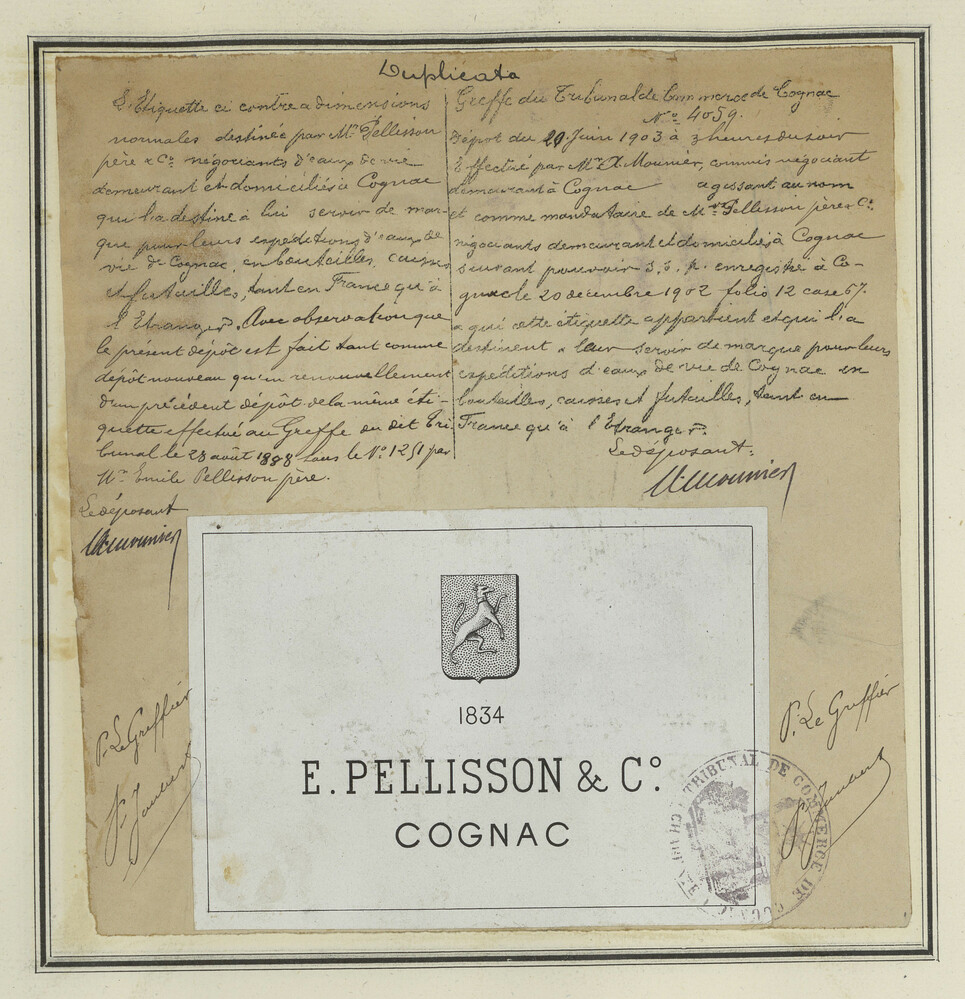 Duplicata
L'Etiquette ci contre a dimensions
normales destinée par Mrs Pellisson
père & Co négociants d'eaux de vie
demeurant et domiciliés à Cognac
qui l'a destine à lui servir de mar-
que pour leurs expéditions d'eaux de
vie de Cognac, en bouteilles, caisses
et futailles, tant en France qu'à
l'Etranger. Avec observation que
le présent dépôt est fait tant comme
dépôt nouveau qu'en renouvellement
d'un précédent dépôt de la même éti-
quette effectué au Greffe du dit Tri-
bunal le 28 août 1888 sous le No 1251 par
Mr Emile Pellisson père.
Le déposant
A. Mounier
Greffe du Tribunal de Commerce de Cognac
No 4059.
Dépôt du 20 Juin 1903 à 3 heures du soir
Effectué par Mr A. Mounier, commis négociant
demeurant à Cognac agissant au nom
et comme mandataire de Mrs Pellisson père & Co
négociants demeurant et domiciliés à Cognac
suivant pouvoir s. s. p. enregistré à Co-
gnac le 20 décembre 1902 folio 12 case 67.
a qui cette étiquette appartient et qui l'a
destinent a leur servir de marque pour leurs
expéditions d'eaux de vie de Cognac en
bouteilles, caisses et futailles, tant en
France qu'à l'Etranger.
Le déposant:
A. Mounier
P. Le Greffier
P. Le Greffier
1834
E. PELLISSON & Co.
COGNAC
TRIBUNAL DE COMMERCE DE COGNAC